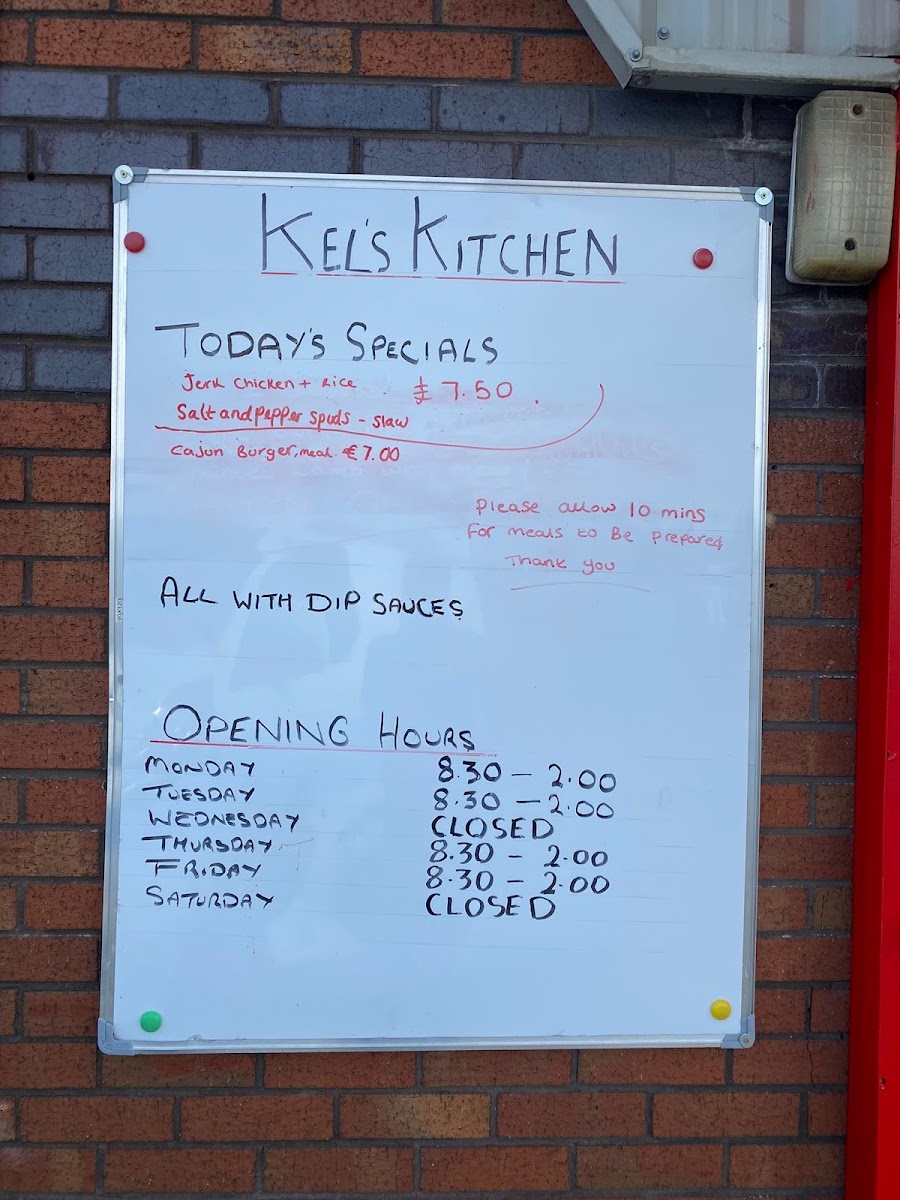 KEL'S KITCHEN
TODAY'S SPECIALS
Jerk chicken + Rice £7.50
Salt and Pepper spuds - slaw
Cajun Burger, meal. €7.00
Please allow 10 mins
For meals to Be prepared
Thank you
ALL WITH DIP SAUCES
OPENING HOURS
MONDAY 8.30 - 2.00
TUESDAY 8.30 - 2.00
WEDNESDAY CLOSED
THURSDAY 8.30 - 2.00
FRIDAY 8.30 - 2.00
SATURDAY CLOSED